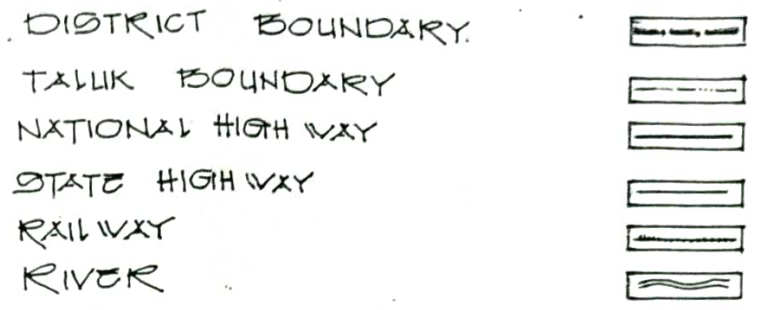 DISTRICT BOUNDARY.
TALUK BOUNDARY
NATIONAL HIGHWAY
STATE HIGHWAY
RAILWAY
RIVER